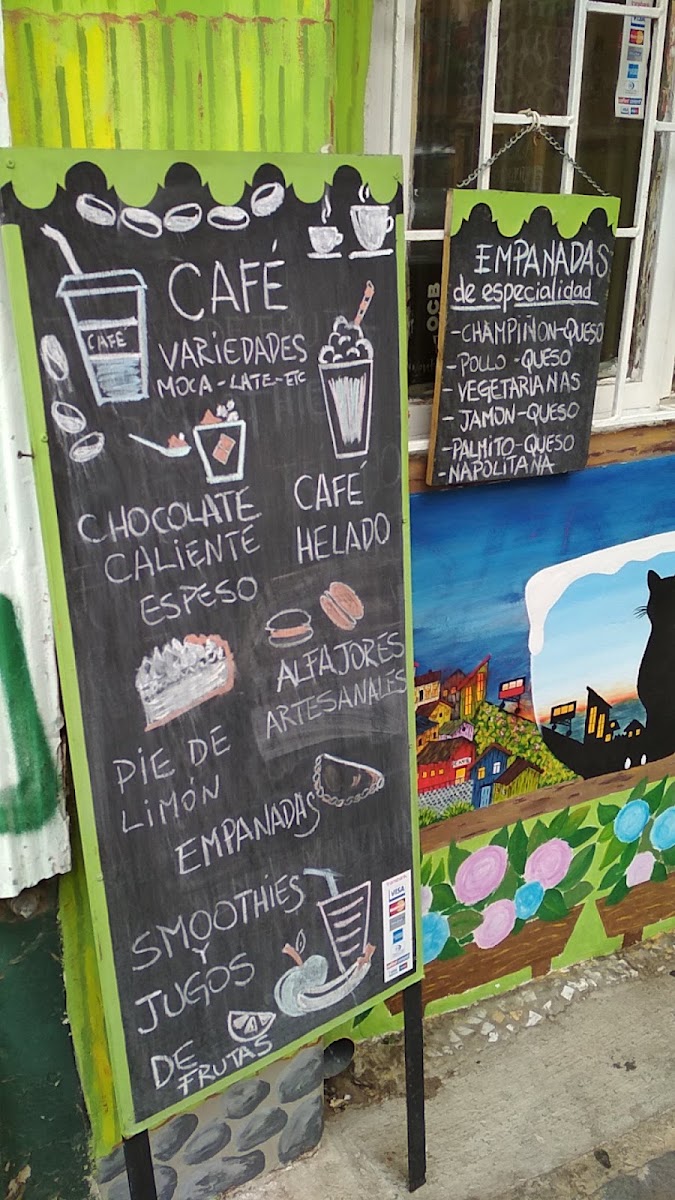 CAFÉ
CAFÉ
VARIEDADES
MOCA - LATE - ETC
CHOCOLATE
CALIENTE
ESPESO
CAFÉ
HELADO
ALFAJORES
ARTESANALES
PIE DE
LIMON
EMPANADAS
SMOOTHIES
Y
JUGOS
DE
FRUTAS
VISA
EMPANADAS
de especialidad
-CHAMPIÑON-QUESO
-POLLO-QUESO
-VEGETARIANAS
-JAMON-QUESO
-PALMITO-QUESO
-NAPOLITANA
OCB